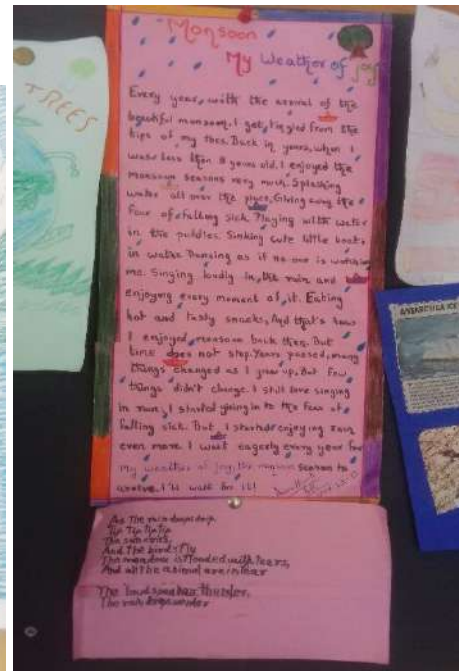 TREES
Monsoon
My Weather of Joy
Every year, with the arrival of the
beautiful monsoon. I get tingled from the
tips of my toes. Back in years, when I
was less than 8 years old. I enjoyed the
monsoon seasons very much. Splashing
water all over the place, Giving away the
fear of falling sick. Playing with water
in the puddles. Sinking cute little boats
in water. Dancing as if no one is watching
me. Singing loudly in the rain and
enjoying every moment of it. Eating
hot and tasty snacks, And that's how
I enjoyed monsoon back then. But
time does not stop. Years passed, many
things changed as I grew up. But few
things didn't change. I still love singing
in rain, I started giving in to the fear of
falling sick. But I started enjoying rain
even more. I wait eagerly every year for
my weather of joy, the monsoon season to
arrive. I'll wait for it!
As the rain drops drip
Tip Tip Tip Tip
The sun cries,
And the birds fly
The meadow is flooded with tears,
And all the animal are in fear
The loud speaker thunder,
The rain drops wonder